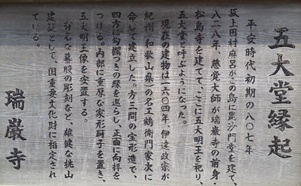 五大堂縁起
平安時代初期の八〇七年
坂上田村麻呂がこの島に毘沙門堂を建て
八二八年、慈覚大師が瑞巌寺の前身・
松島寺を建てて、ここに五大明王を祀り、
五大堂と呼ぶようになった。
現在の建物は一六〇四年伊達政宗が
紀州（和歌山県）の名工鶴衛門家次に
命じて建立した。方三間の宝形造で、
四方に勾欄つきの縁を巡らし、正面に向拝を
つける。内部に重厚な家形厨子を置き、
五大明王像を安置する。
力強い蟇股の彫刻など、雄健な桃山
建築として、国重要文化財に指定され
ている。
瑞巌寺